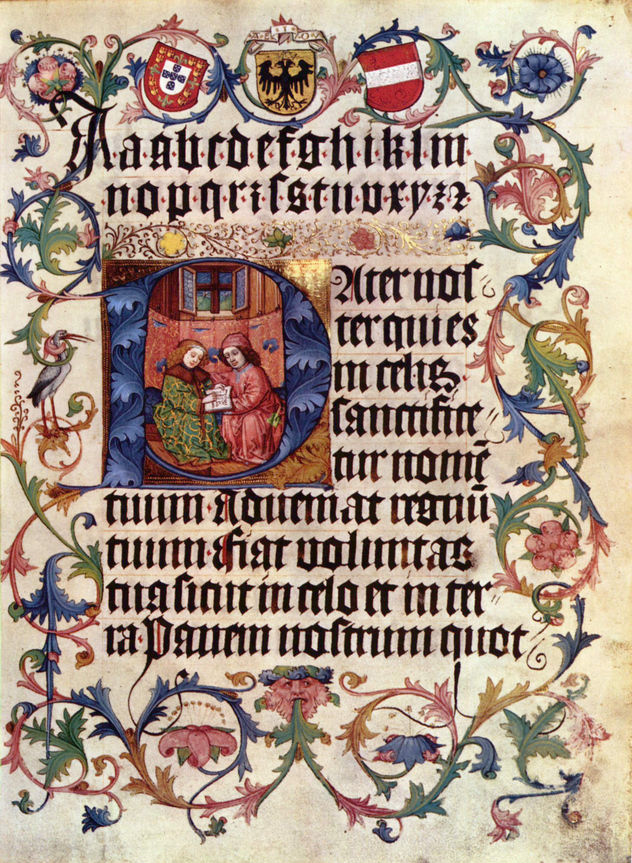 A a·a·b·c·d·e·f·g·h·i·k·l·m
n·o·p·q·r·ꝛ·ſ·s·t·u·v·x·y·z·z
PAter noſ
ter qui es
in celis·
ſanctifice
tur nomē
tuum·Adueniat regnū
tuum·Fiat voluntas
tua ſicut in celo et in ter
ra·Panem noſtrum quot